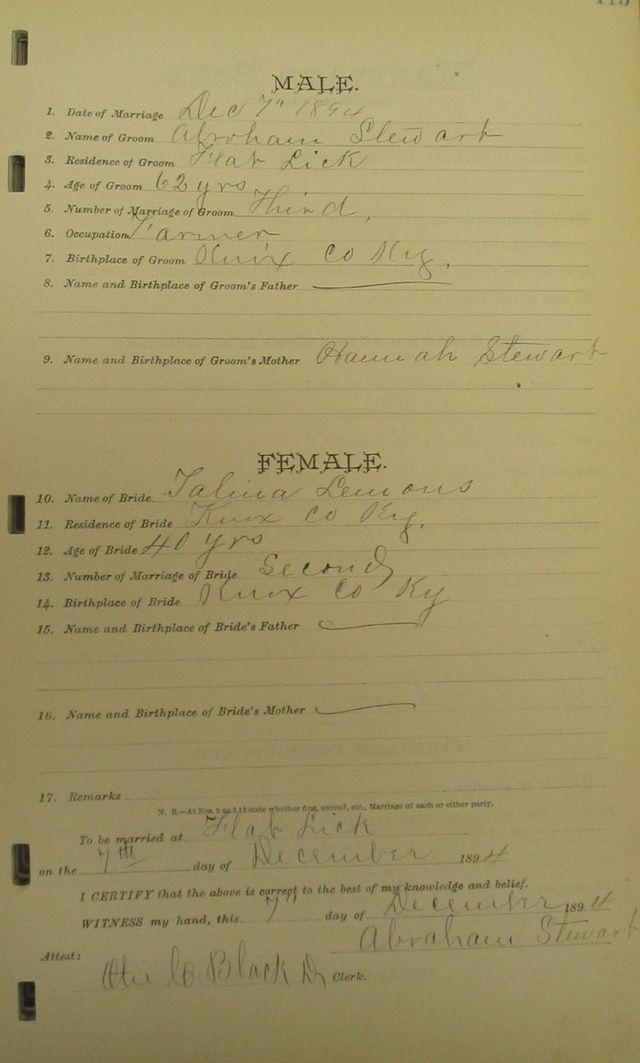 MALE.
1. Date of Marriage Dec 7" 1894
2. Name of Groom Abraham Stewart
3. Residence of Groom Flat Lick
4. Age of Groom 62 yrs
5. Number of Marriage of Groom Third,
6. Occupation Farmer
7. Birthplace of Groom Knox Co Ky.
8. Name and Birthplace of Groom's Father
9. Name and Birthplace of Groom's Mother Hannah Stewart
FEMALE.
10. Name of Bride Talina Lemons
11. Residence of Bride Knox Co Ky.
12. Age of Bride 40 yrs
13. Number of Marriage of Bride Second
14. Birthplace of Bride Knox Co Ky
15. Name and Birthplace of Bride's Father
16. Name and Birthplace of Bride's Mother
17. Remarks
N. B.—At Nos. 5 and 13 state whether first, second, etc., Marriage of each or either party.
To be married at Flat Lick
on the 7th day of December 1894
I CERTIFY that the above is correct to the best of my knowledge and belief.
WITNESS my hand, this 7" day of December 1894
Abraham Stewart
Attest:
Black Clerk.